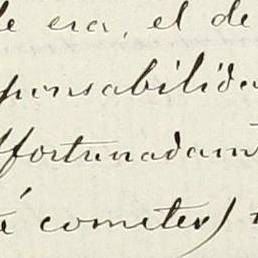 le era, el de
ponsabilida
ffortunadam
é cometer)